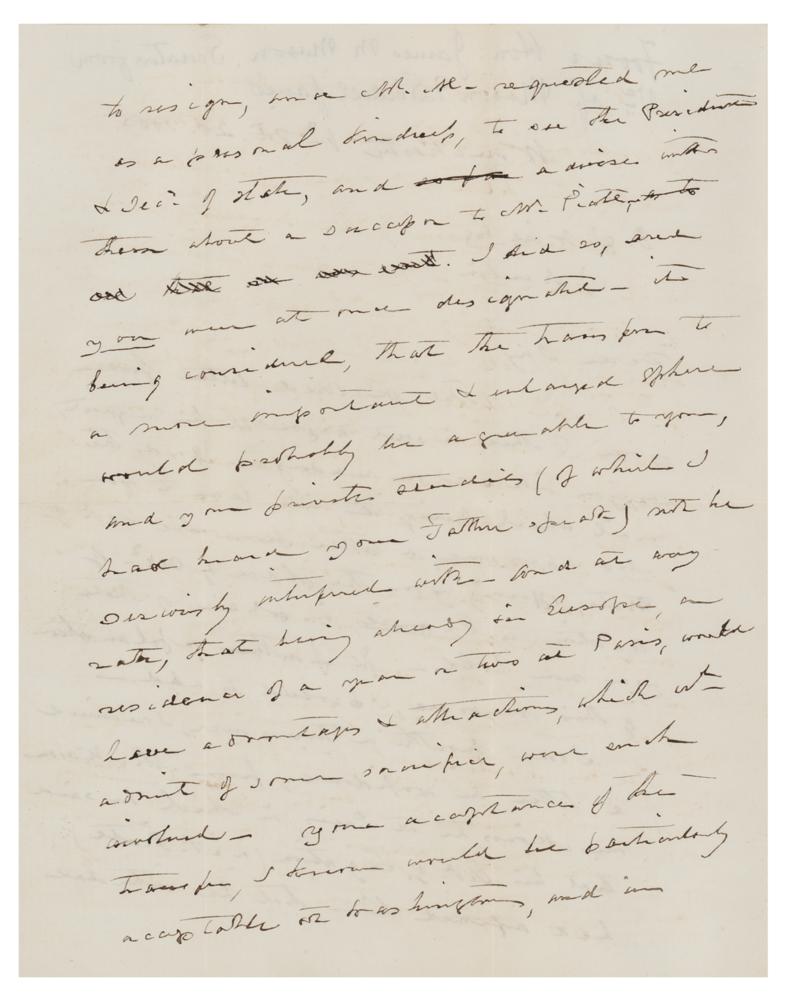 to resign, and Mr. M– requested me
as a personal kindness, to see the President
& Sec: of State, and so far advise with
them about a successor to Mr. Piatt, as to
. I did so, and
you were at once designated – it
being considered, that the transfer to
a more important & enlarged sphere
would probably be agreeable to you,
and your private studies (of which I
had heard your Father speak) not be
seriously interfered with – and at any
rate, that being already in Europe, a
residence of a year or two at Paris, would
have advantages & attractions, which wd
admit of some sacrifice, were such
involved – your acceptance of the
transfer, I know would be particularly
acceptable at Washington, and in